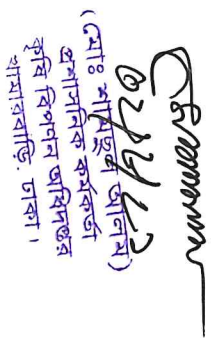 ২৭/৭/১
(মোঃ শামছুল আলম)
প্রশাসনিক কর্মকর্তা
কৃষি বিপণন অধিদপ্তর
খামারবাড়ি. ঢাকা।